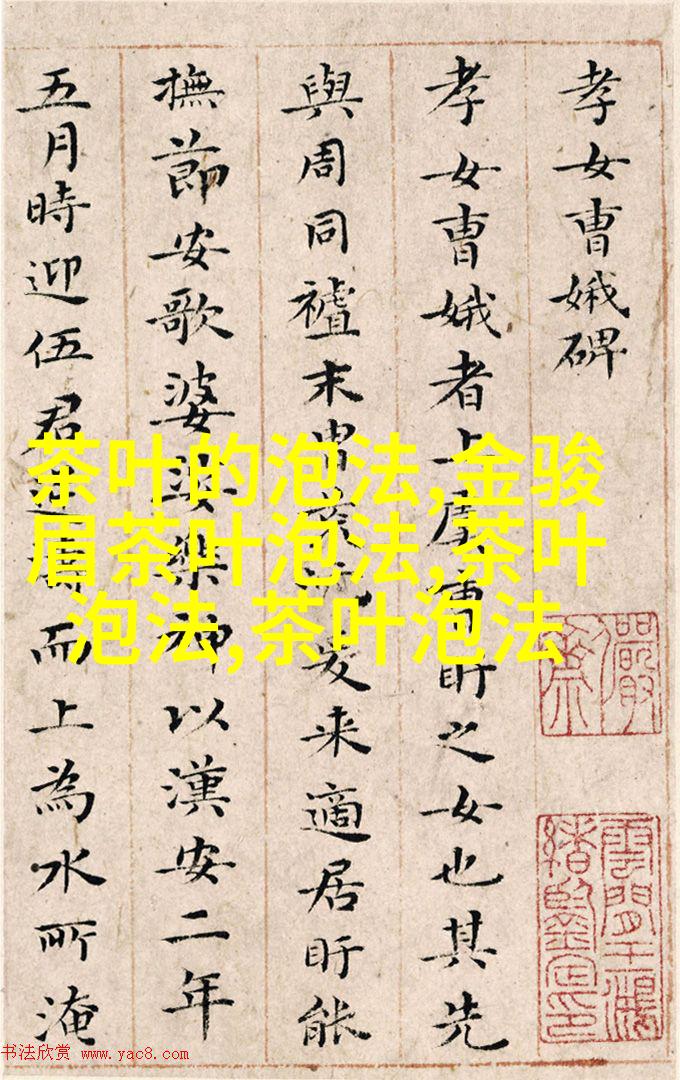 孝女曹娥碑
孝女曹娥者上虞曹盱之女也其先
與周同禇末胄荒流爰来適居盱能
撫節安歌婆娑樂神以漢安二年
五月時迎伍君逆濤而上為水所淹
茶叶的泡法,金骏
眉茶叶泡法,茶叶
泡法,茶叶泡法
书法欣赏 www.yac8.com